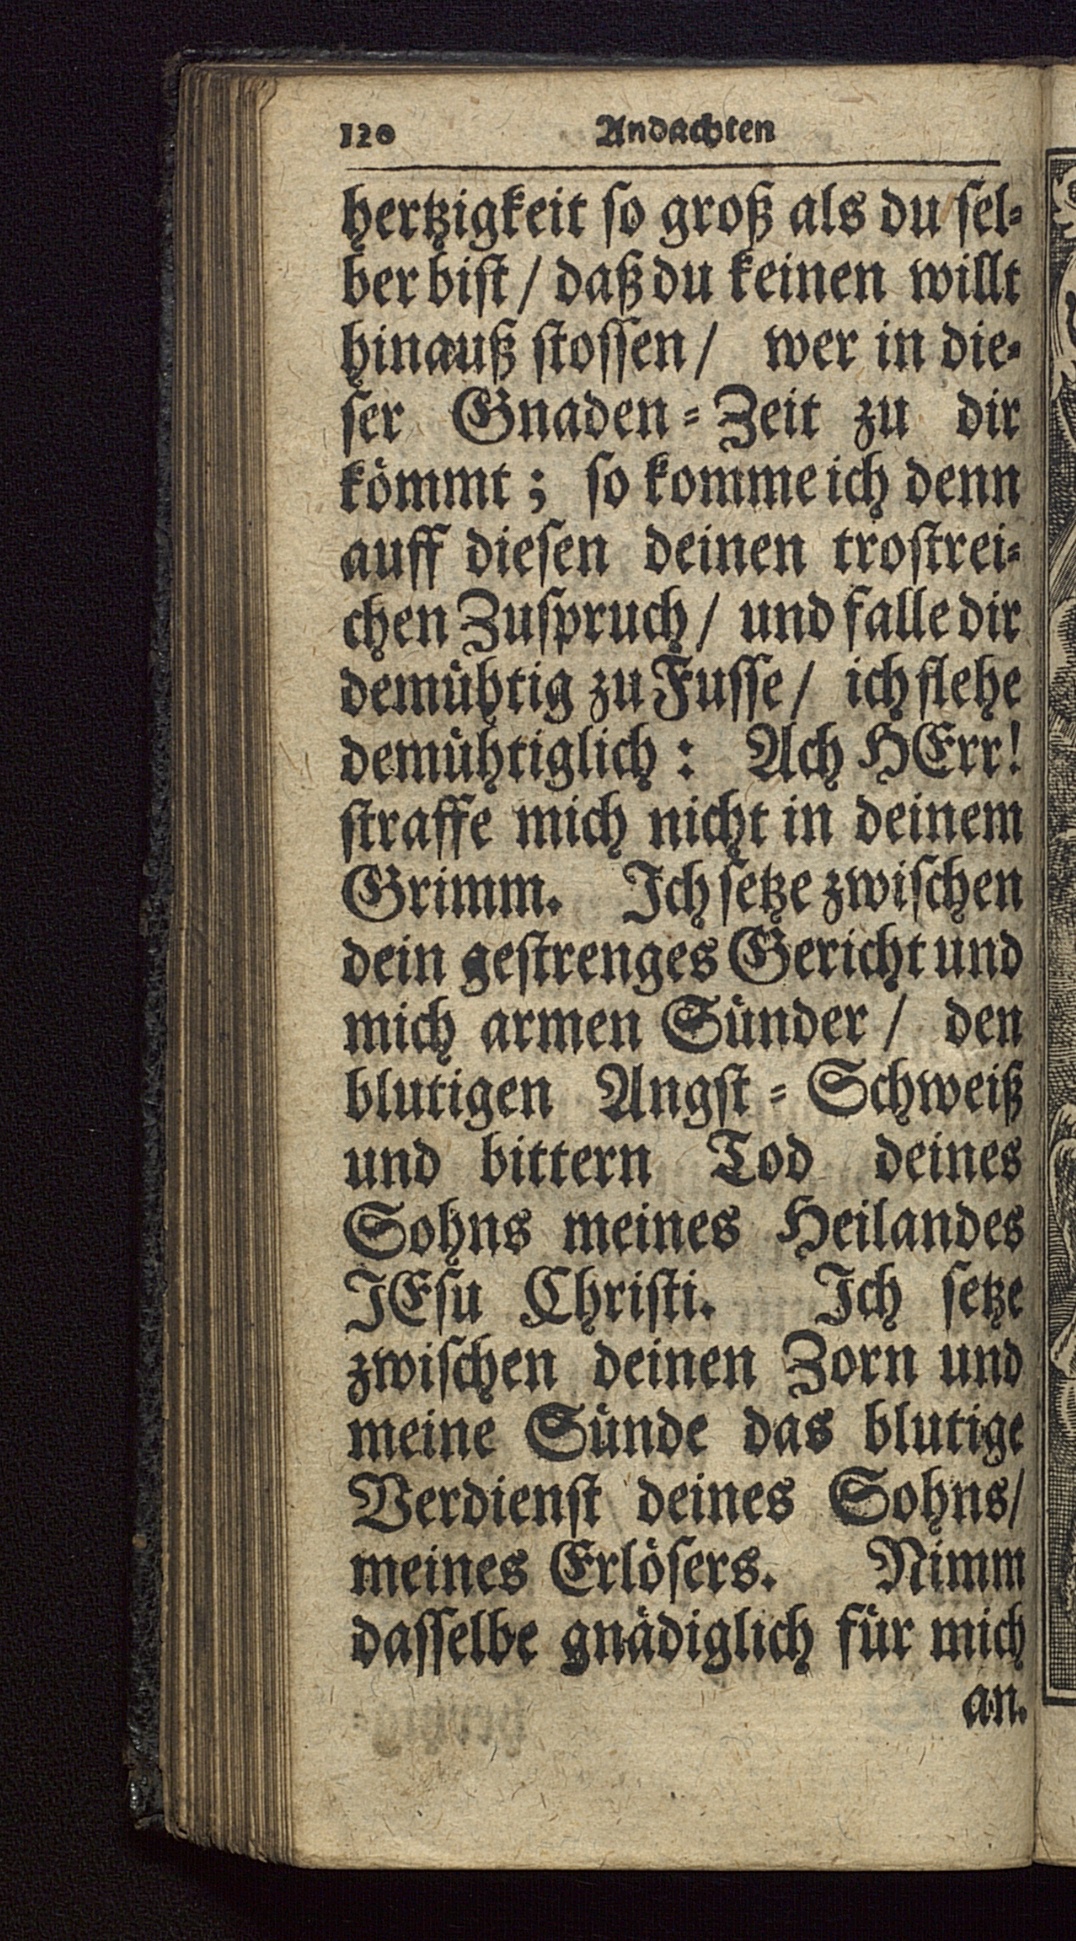 120 Andachten
hertzigkeit so groß als du sel-
ber bist / daß du keinen willt
hinauß stossen / wer in die-
ser Gnaden-Zeit zu dir
kömmt; so komme ich denn
auff diesen deinen trostrei-
chen Zuspruch / und falle dir
demühtig zu Fusse / ich flehe
demühtiglich: Ach HErr!
straffe mich nicht in deinem
Grimm. Ich setze zwischen
dein gestrenges Gericht und
mich armen Sünder / den
blutigen Angst-Schweiß
und bittern Tod deines
Sohns meines Heilandes
JEsu Christi. Ich setze
zwischen deinen Zorn und
meine Sünde das blutige
Verdienst deines Sohns /
meines Erlösers. Nimm
dasselbe gnädiglich für mich
an.